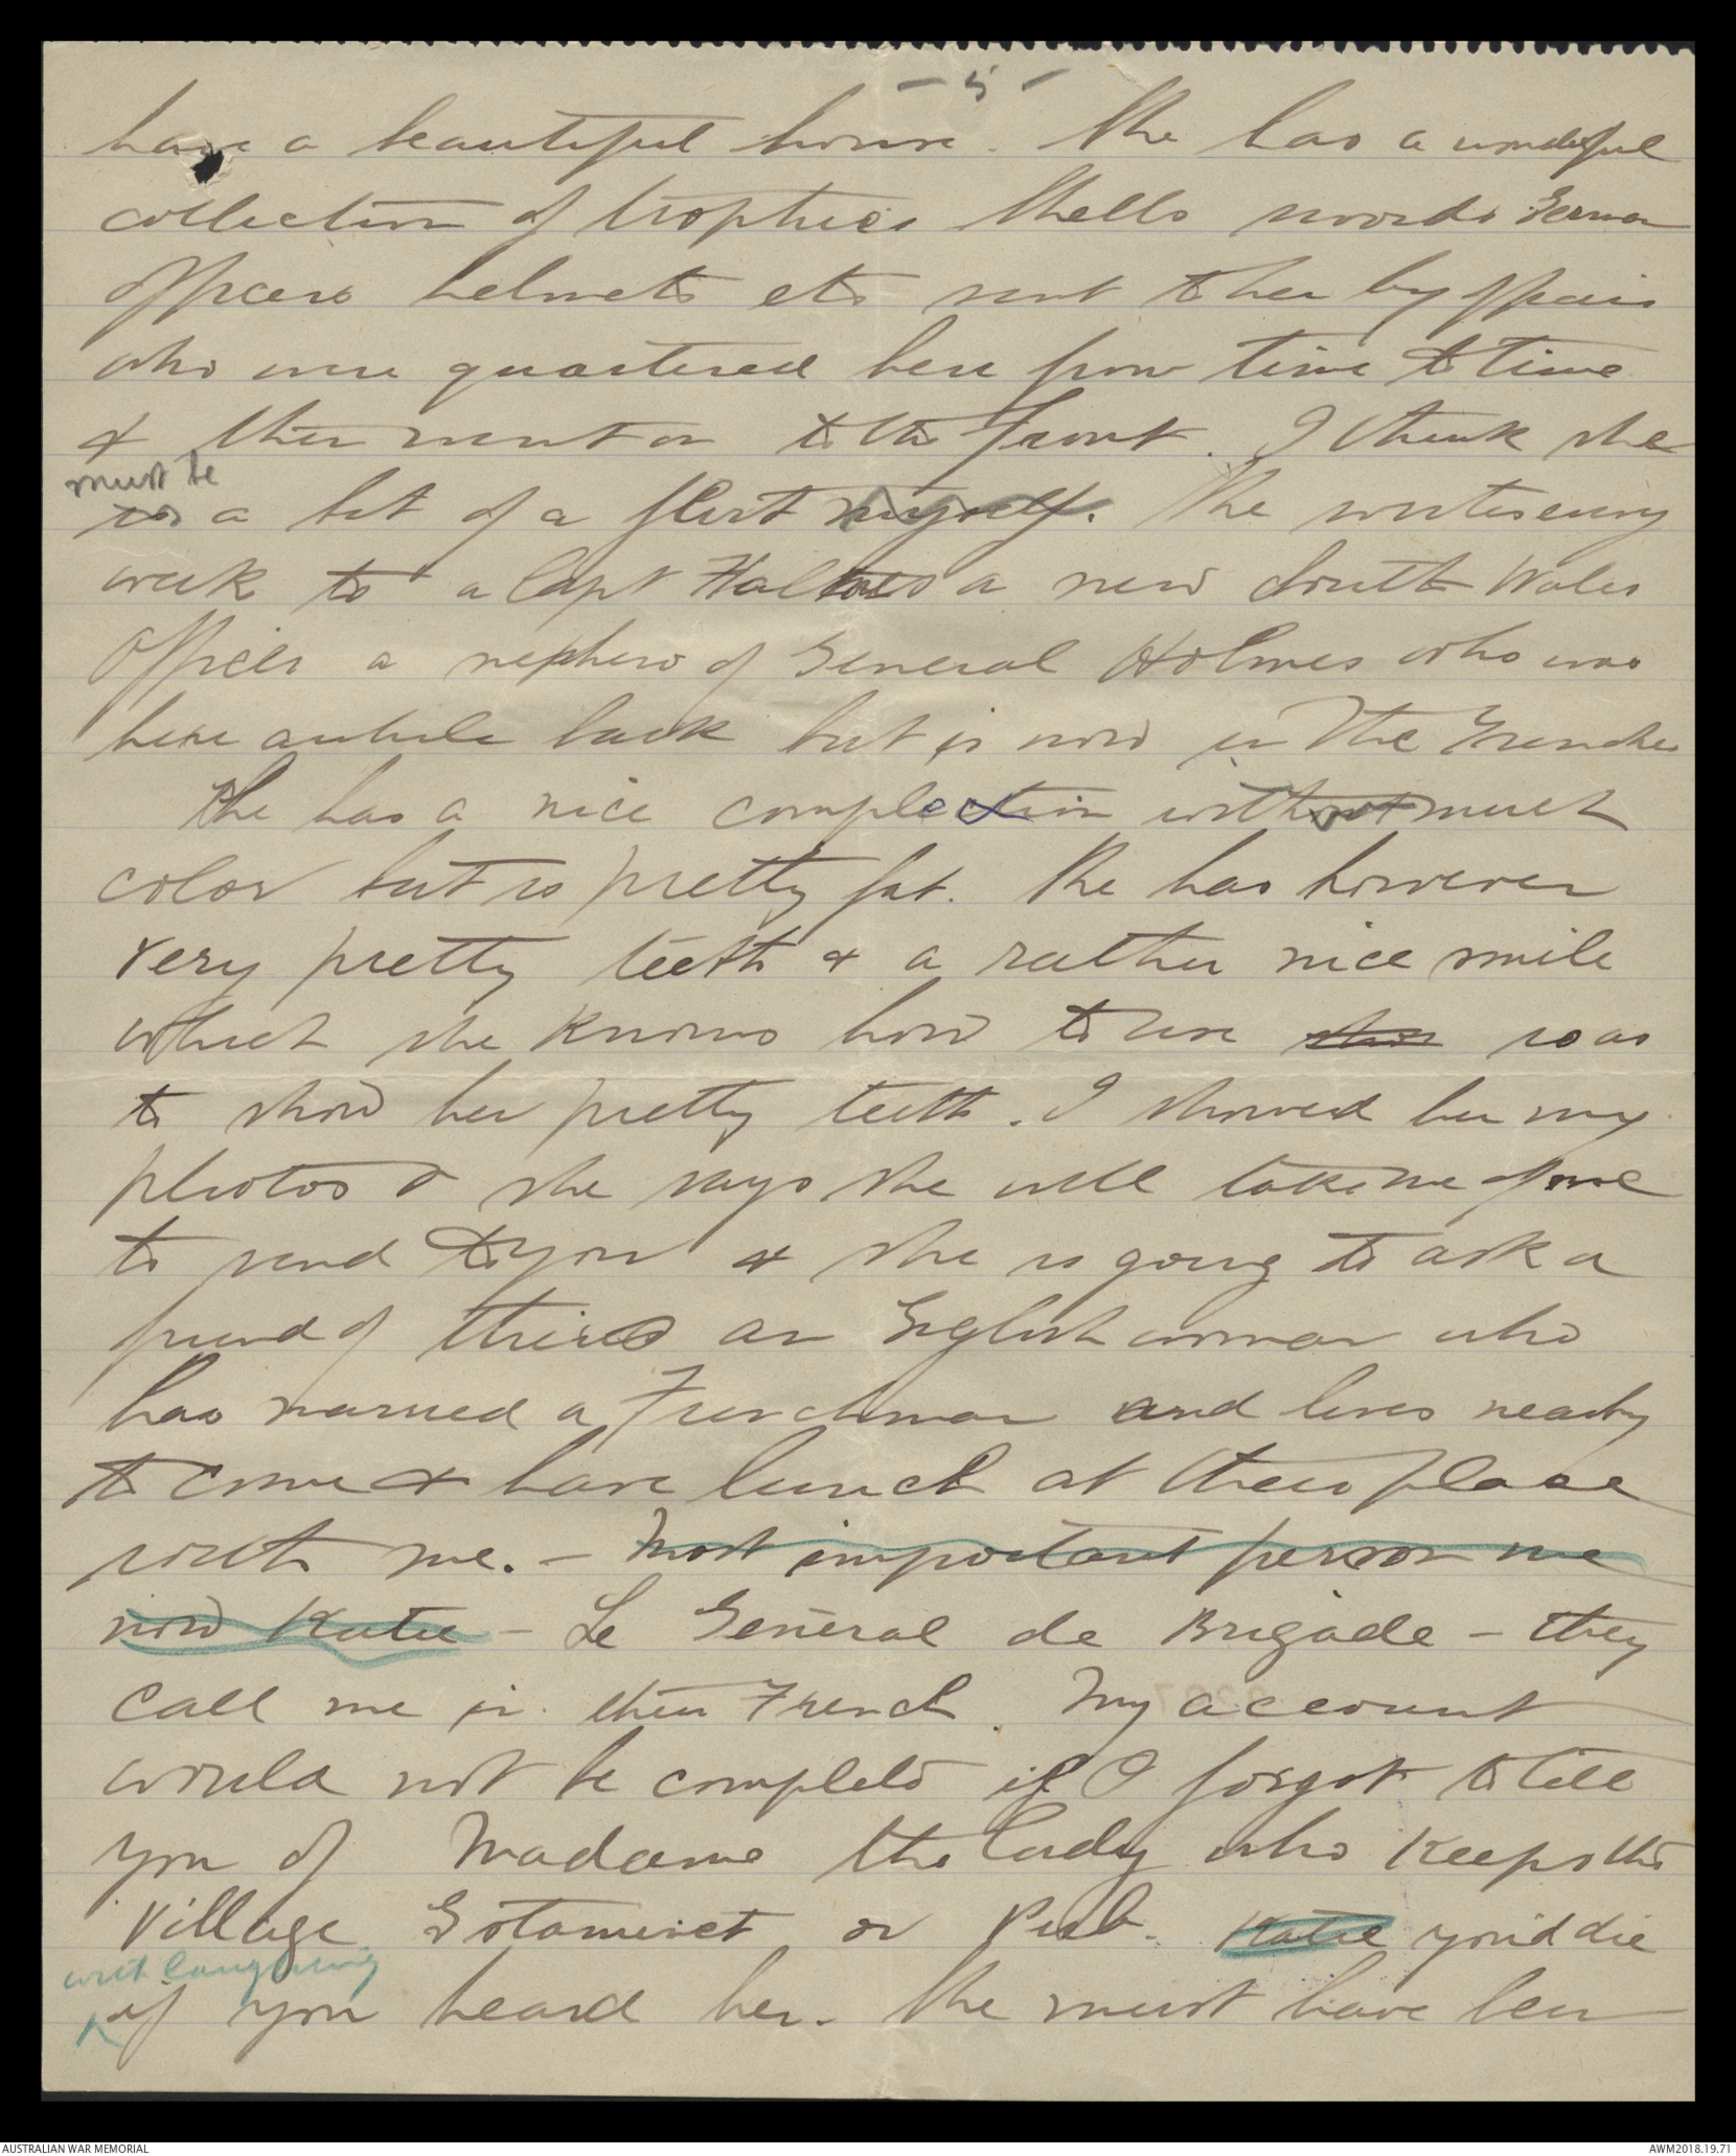 - 5 -
have a beautiful home. She has a wonderful
collection of trophies Shells swords German
Officers helmets etc sent to her by officers
who were quartered here from time to time
& then went on to the Front. I think she
must be
is a bit of a flirt myself. She writes every
week to a Capt Holmes a New South Wales
Officer a nephew of General Holmes who was
here awhile back but is now in the Trenches
She has a nice complection without much
color but is pretty fat. She has however
very pretty teeth & a rather nice smile
which she knows how to use so as
to show her pretty teeth. I showed her my
photos & she says she will take me some
to send to you & she is going to ask a
friend of theirs an English woman who
has married a Frenchman and lives nearby
to come & have lunch at their place
with me. - Most important person me
now Katie - Le Général de Brigade - they
call me in their French. My account
would not be complete if I forgot to tell
you of Madame the lady who keeps the
Village Estaminet or Pub. Katie you'd die
with laughing
if you heard her. She must have been
AUSTRALIAN WAR MEMORIAL
AWM2018.19.71